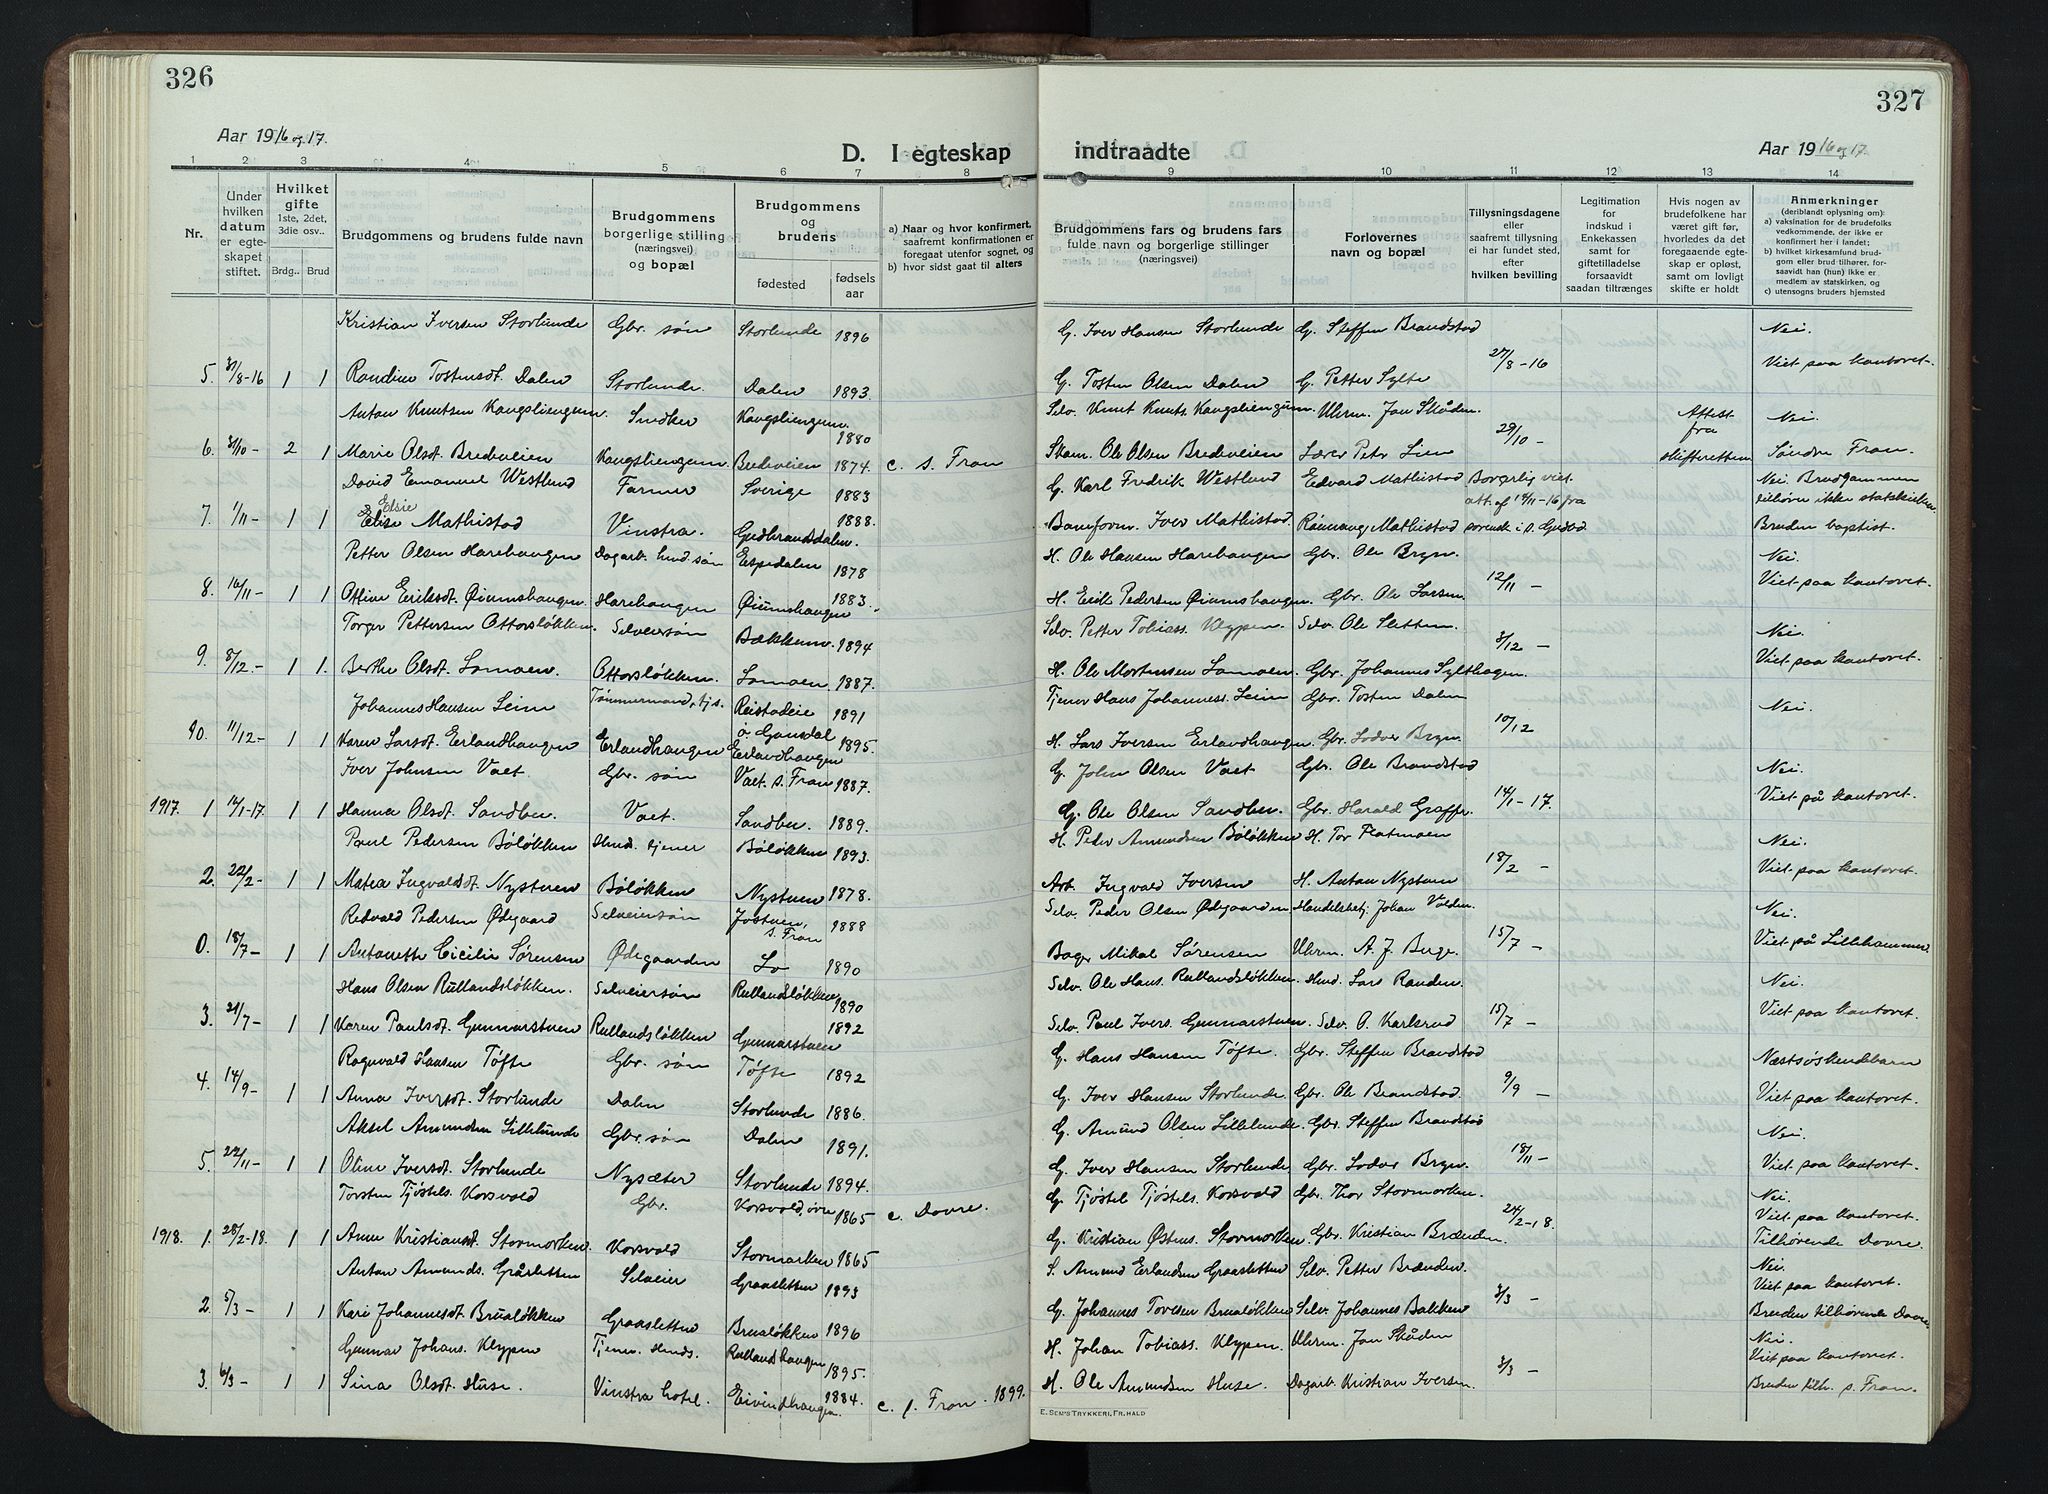 326
Aar 1916 og 17.
D. I egteskap
1 2 3 4 5 6 7 8
Nr.
Under hvilken datum er egteskapet stiftet.
Hvilket gifte 1ste, 2det, 3die osv..
Brdg.. Brud
Brudgommens og brudens fulde navn
Brudgommens borgerlige stilling (næringsvei) og bopæl
Brudgommens og brudens
fødested
fødsels aar
a) Naar og hvor konfirmert, saafremt konfirmationen er foregaat utenfor sognet, og
b) hvor sidst gaat til alters
Kristian Iversen Storlunde Gbr. søn Storlunde 1896
5. 31/8-16 1 1 Randine Tostensdt. Dalen Storlunde. Dalen 1893.
Anton Knutsen Kongsliengum. Snedker Kongsliengum. 1880
6. 31/10- 2 1 Marie Olsdt. Bredeveien Kongsliengum. Bredeveien 1874. c. S. Fron
David Emanuel Westlund Farmer Sverige 1883
Elsie
7. 1/11- 1 1 Elise Mathistad Vinstra. Gudbrandsdalen. 1888.
Petter Olsen Harehaugen Dagarb. husd. søn Espedalen 1878
8. 16/11- 1 1 Oline Eriksdt. Øiumshaugen. Harehaugen Øiumshaugen 1883.
Torger Pettersen Ottorsløkken. Selveiersøn Bækkemo. 1894
9. 8/12.- 1 1. Berthe Olsdt. Lomoen. Ottorsløkken. Lomoen 1887.
Johannes Hansen Leim Tømmermand, tjs. Reistadeie ø. Gausdal 1891
10. 11/12- 1 1 Karen Larsdt. Erlandhaugen Erlandhaugen Erlandhaugen 1895.
Iver Johnsen Vaet. Gbr. søn Vaet. S. Fron 1887.
1917. 1 16/1-17. 1 1 Hanna Olsdt. Sandbu. Vaet. Sandbu. 1889.
Paul Pedersen Bøløkken Husd. tjener Bøløkken 1893.
2. 22/2- 1 1 Matea Ingvaldsdt. Nystuen Bøløkken Nystuen 1878.
Redvald Pedersen Ødegaard Selveiersøn Jostuen, S. Fron 1888
0. 18/7- 1 1 Antonette Cicilie Sørensen Ødegaarden Lo 1890
Hans Olsen Rullandsløkken. Selveiersøn Rullandsløkken 1890
3. 21/7- 1 1 Karen Paulsdt. Gunnarstuen Rullandsløkken Gunnarstuen 1892
Ragnvald Hansen Tøfte Gbr. søn Tøfte 1892
4. 14/9- 1 1 Anna Iversdt. Storlunde Dalen Storlunde 1886.
Aksel Amundsen Lillelunde Gbr. søn Dalen 1891.
5. 22/11- 1 1 Oline Iversdt. Storlunde Nysæter Storlunde 1894.
Torsten Tjøstels. Korsvold Gbr. Korsvold, øvre 1865 c. Dovre.
1918. 1. 28/2-18. 1 1 Anne Kristiansdt. Stormorken. Korsvold Stormorken 1865
Anton Amunds. Gråsletten Selveier Graasletten 1893
2. 5/3- 1 1 Kari Johannesdt. Brualøkken Graasletten Brualøkken 1896
Gunnar Johans. Klypen Tjener. Husds. Rullandshaugen 1895.
3. 6/3- 1 1 Sina Olsdt. Huse. Vinstra hotel. Eivindhaugen. 1884. c. S. Fron 1899.
327
indtraadte
Aar 1916 og 17.
9 10 11 12 13 14
Brudgommens fars og brudens fars fulde navn og borgerlige stillinger (næringsvei)
Forlovernes navn og bopæl
Tillysningsdagene eller saafremt tillysning ei har fundet sted, efter hvilken bevilling
Legitimation for indskud i Enkekassen samt for giftetilladelse forsaavidt saadan tiltrænges
Hvis nogen av brudefolkene har været gift før, hvorledes da det foregaaende egteskap er opløst, samt om lovligt skifte er holdt
Anmerkninger
(deriblandt oplysning om):
a) vaksination for de brudefolks vedkommende, der ikke er konfirmert her i landet;
b) hvilket kirkesamfund brudgom eller brud tilhører, forsaavidt han (hun) ikke er medlem av statskirken, og
c) utensogns bruders hjemsted
G. Iver Hansen Storlunde G. Steffen Brandstad Nei.
G. Tosten Olsen Dalen G. Petter Sylte 27/8-16 Viet paa kontoret.
Selv. Knut Knuts. Kongsliengum. Uhrm. Jon Skåden. Attest fra Nei.
Skom. Ole Olsen Bredeveien Lærer Peter Lien 29/10 - skifteretten Søndre Fron.
G. Karl Fredrik Westlund Edvard Mathistad Borgerlig viet. Nei. Brudgommen
att. af 14/11-16 fra tilhører ikke statskirken.
Banform. Iver Mathistad. Rømnaug Mathistad sorensk. i S. Gudbd Bruden baptist.
H. Ole Hansen Harehaugen Gbr. Ole Bryn. Nei.
H. Erik Pedersen Øiumshaugen. Gbr. Ole Larsen. 12/11 - Viet paa kontoret.
Selv. Petter Tobiass. Klypen. Selv. Ole Sletten. Nei.
H. Ole Mortensen Lomoen Gbr. Johannes Sylthagen. 3/12 - Viet paa kontoret.
Tjener Hans Johanness. Leim Gbr. Tosten Dalen Nei.
H. Lars Iversen Erlandhaugen. Gbr. Lodvar Bryn. 10/12
G. John Olsen Vaet Gbr. Ole Brandstad Nei.
G. Ole Olsen Sandbu. Gbr. Harald Graffer. 14/1-17. Viet på kontoret.
H. Peder Amundsen Bøløkken H. Tor Flatmoen Nei.
Arb. Ingvald Iversen H. Anton Nystuen 18/2 - Viet paa kontoret.
Selv. Peder Olsen Ødegaarden Handelsbetj. Johan Volden. Nei.
Bager Mikal Sørensen Uhrm. A. J. Berge. 15/7 - Viet på Lillehammer.
Selv. Ole Hans. Rullandsløkken. Husd. Lars Randen. Nei.
Selv. Paul Ivers. Gunnarstuen. Selv. O. Karlsrud 15/7 - Viet paa kontoret.
G. Hans Hansen Tøfte. Gbr. Steffen Brandstad Næstsøskendebarn
G. Iver Hansen Storlunde. Gbr. Ole Brandstad. 9/9 - Viet paa kontoret.
G. Amund Olsen Lillelunde. Gbr. Steffen Brandstad Nei.
G. Iver Hansen Storlunde Gbr. Lodvar Bryn. 18/11- Viet paa kontoret.
G. Tjøstel Tjøstels. Korsvold Gbr. Thor Stormorken. Nei.
Viet paa kontoret.
G. Kristian Østens. Stormorken. Gbr. Kristian Brænden. 24/2-18. Tilhørende Dovre.
S. Amund Erlandsen Graasletten Selv. Petter Brænden. Nei.
Viet paa kontoret.
G. Johannes Toresen Brualøkken Selv. Johannes Bakken 3/3 - Bruden tilhørende Dovre.
H. Johan Tobiass. Klypen. Uhrm. Jon Skåden Nei.
Viet paa kontoret.
H. Ole Amundsen Huse. Dagarb. Kristian Iversen. 3/3 - Bruden tilh. S. Fron.
E. SEM'S TRYKKERI, FR.HALD